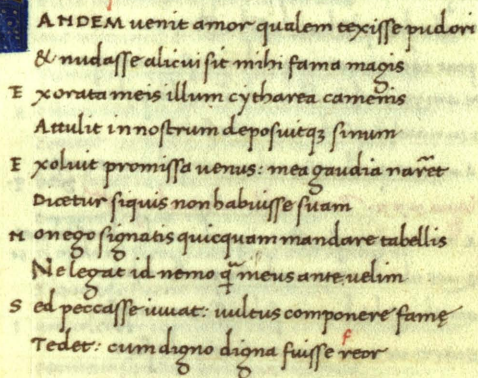 ANDEM venit amor qualem texisse pudori
& nudasse alicui sit mihi fama magis
E xorata meis illum cytharea camenis
Attulit in nostrum deposuitqꝫ sinum
E xoluit promissa uenus: mea gaudia nar̅et
Dicetur siquis non habuisse suam
N on ego signatis quicquam mandare tabellis
Ne legat id nemo qᷓ meus ante uelim
S ed peccasse iuuat: uultus componere famę
Tedet: cum digno digna fuisse reor